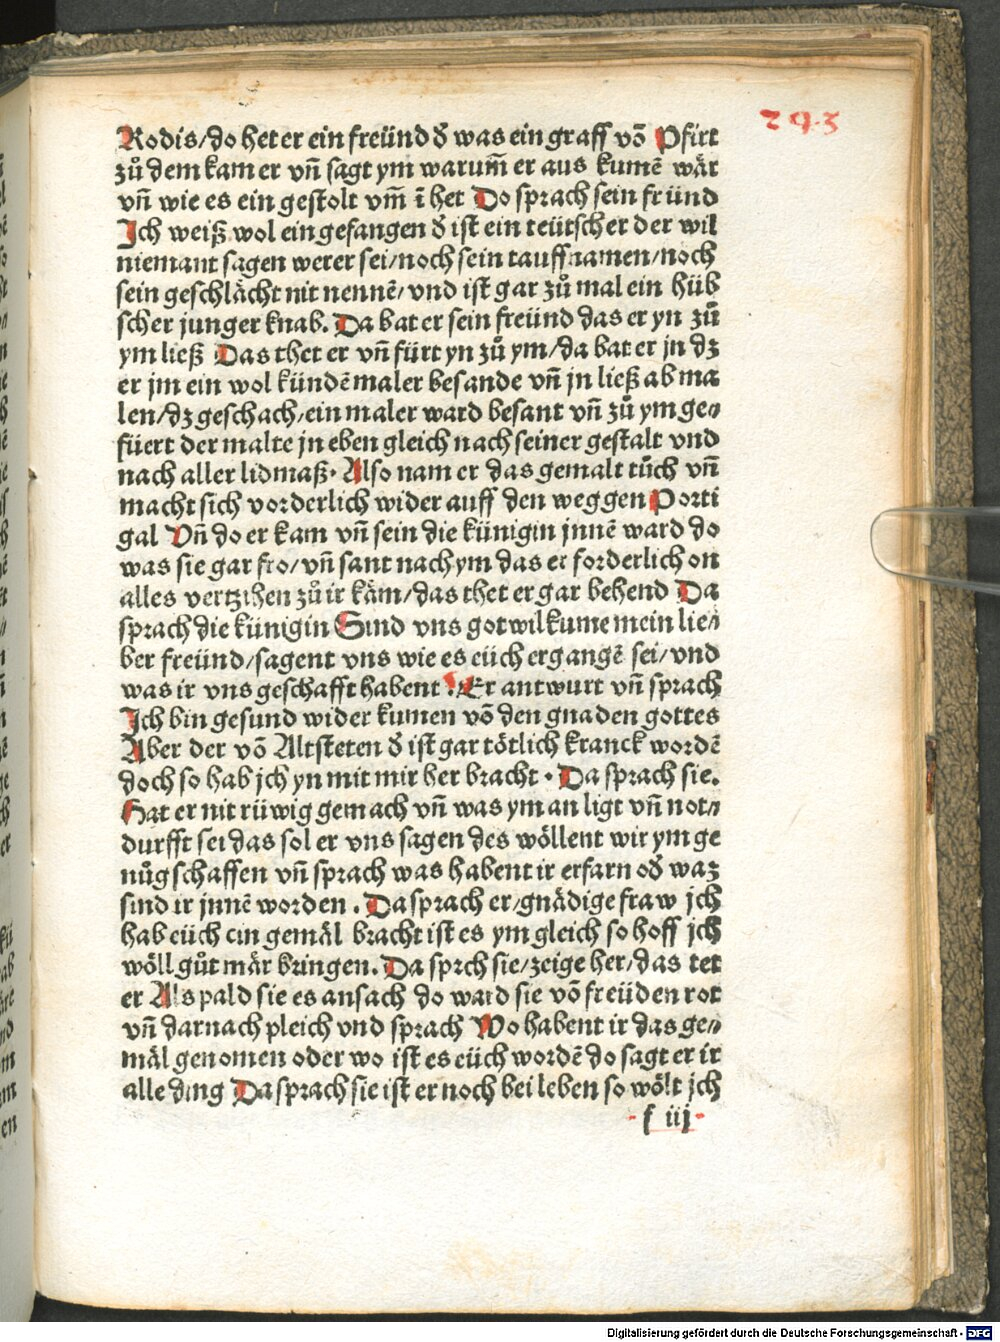 293
Rodis/do het er ein freünd ð was ein graff võ Pfirt
zů dem kam er vñ sagt ym warum̃ er aus kumẽ wår
vñ wie es ein gestolt vm̃ ĩ het Do sprach sein fründ
Ich weiß wol ein gefangen ð ist ein teütscher der wil
niemant sagen wer er sei/noch sein tauff namen/noch
sein geschlåcht nit nennẽ/vnd ist gar zů mal ein hüb
scher junger knab. Da bat er sein freünd das er yn zů
ym ließ Das thet er vñ fürt yn zů ym/da bat er jn dz
er jm ein wol kündẽ maler besande vñ jn ließ ab ma
len/dz geschach/ein maler ward besant vñ zů ym ge⸗
füert der malte jn eben gleich nach seiner gestalt vnd
nach aller lidmaß. Also nam er das gemalt tůch vñ
macht sich vorderlich wider auff den weg gen Porti
gal Vñ do er kam vñ sein die künigin jnnẽ ward do
was sie gar fro/vñ sant nach ym das er forderlich on
alles vertzihen zů ir kåm/das thet er gar behend Da
sprach die künigin Sind vns got wilkume mein lie⸗
ber freünd/sagent vns wie es eüch ergangẽ sei/vnd
was ir vns geschafft habent Er antwurt vñ sprach
Ich bin gesund wider kumen võ den gnaden gottes
Aber der võ Altsteten ð ist gar tötlich kranck wordẽ
doch so hab jch yn mit mir her bracht. Da sprach sie.
Hat er nit rüwig gemach vñ was ym an ligt vñ not⸗
durfft sei das sol er vns sagen des wöllent wir ym ge
nůg schaffen vñ sprach was habent ir erfarn oð waz
sind ir jnnẽ worden. Da sprach er/gnådige fraw jch
hab eüch ein gemål bracht ist es ym gleich so hoff jch
wöll gůt mår bringen. Da sprch sie/zeige her/das tet
er Als pald sie es ansach do ward sie võ freüden rot
vñ darnach pleich vnd sprach Wo habent ir das ge⸗
mål genomen oder wo ist es eüch wordẽ do sagt er ir
alle ding Da sprach sie ist er noch bei leben so wölt jch
f iij
Digitalisierung gefördert durch die Deutsche Forschungsgemeinschaft - DFG